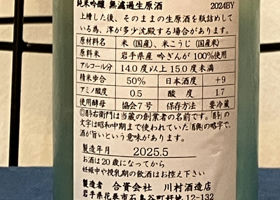 純米吟醸 無濾過生原酒 2024BY
上槽した後、そのままの生原酒を瓶詰めして
いる為、滓が多少沈殿する場合があります。
原材料名 米(国産)、米こうじ(国産米)
原料米 岩手県産 吟ぎんが100%使用
アルコール分 14.0度以上15.0度未満
精米歩合 50% 日本酒度 +9
アミノ酸度 0.5 酸度 1.7
使用酵母 協会7号 保存方法 要冷蔵
右衛門は当蔵の創業者の名前です。
文字は昭和中期まで使われていた
酒が旨いという意味があります。
製造年月 2025.5
お酒は20歳になってから
妊娠中や授乳期の飲酒はお控え下さい
製造者 合資会社 川村酒造店
岩手県花巻市石鳥谷町好地12-132